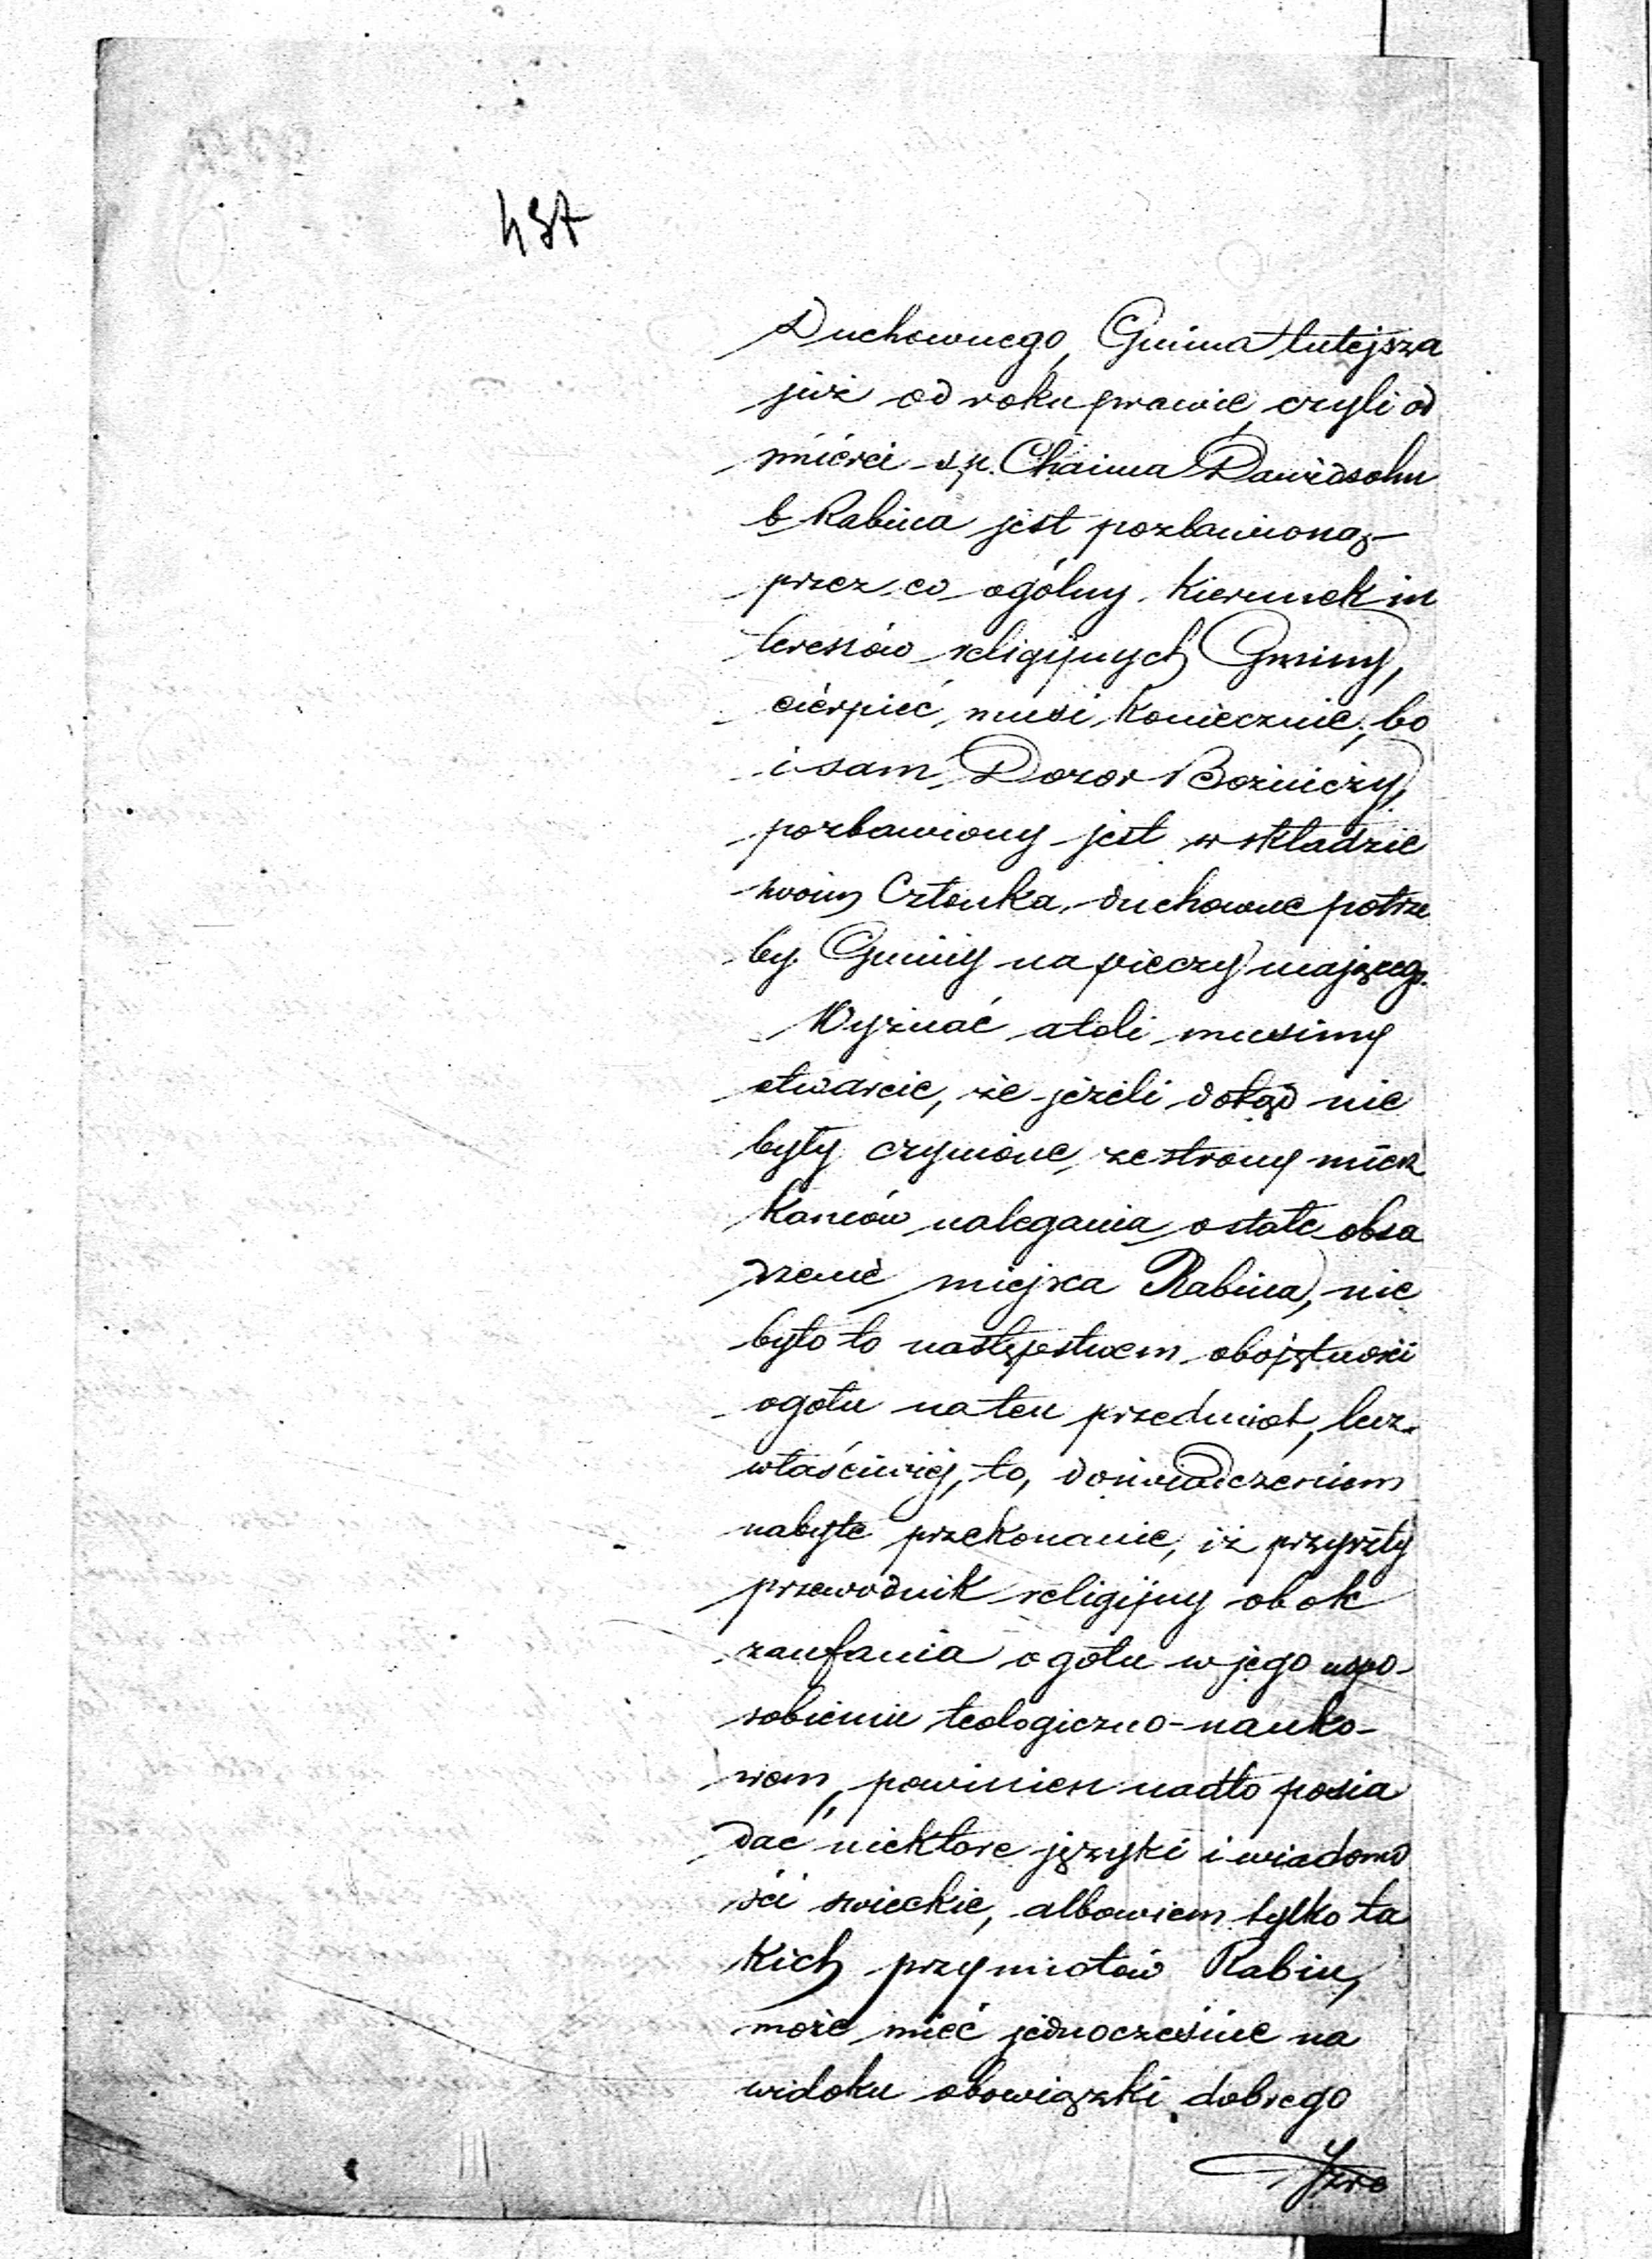 437
Duchownego, Gmina tutejsza
już od roku prawie, czyli od
śmierci ś.p. Chaima Dawidsohn
b. Rabina jest pozbawioną,—
przez co ogólny kierunek in
teressów religijnych Gminy,
cierpieć musi koniecznie, bo
i sam Dozór Bożniczy,
pozbawiony jest w składzie
swoim Członka, duchowne potrze
by Gminy na pieczy mającego.
Wyznać atoli musimy
otwarcie, że jeżeli dotąd nie
były czynione, ze strony miesz
kańców nalegania o stałe obsa
dzenie miejsca Rabina, nie
było to następstwem obojętności
ogółu na ten przedmiot, lecz
właściwiej, to, doświadczeniem
nabyte przekonanie, iż przyszły
przewodnik religijny obok
zaufania ogółu w jego uspo-
sobieniu teologiczno-nauko-
wem, powinien nadto posia
dać niektóre języki i wiadomo
ści świeckie, albowiem tylko ta
kich przymiotów Rabin,
może mieć jednocześnie na
widoku obowiązki dobrego
Izra